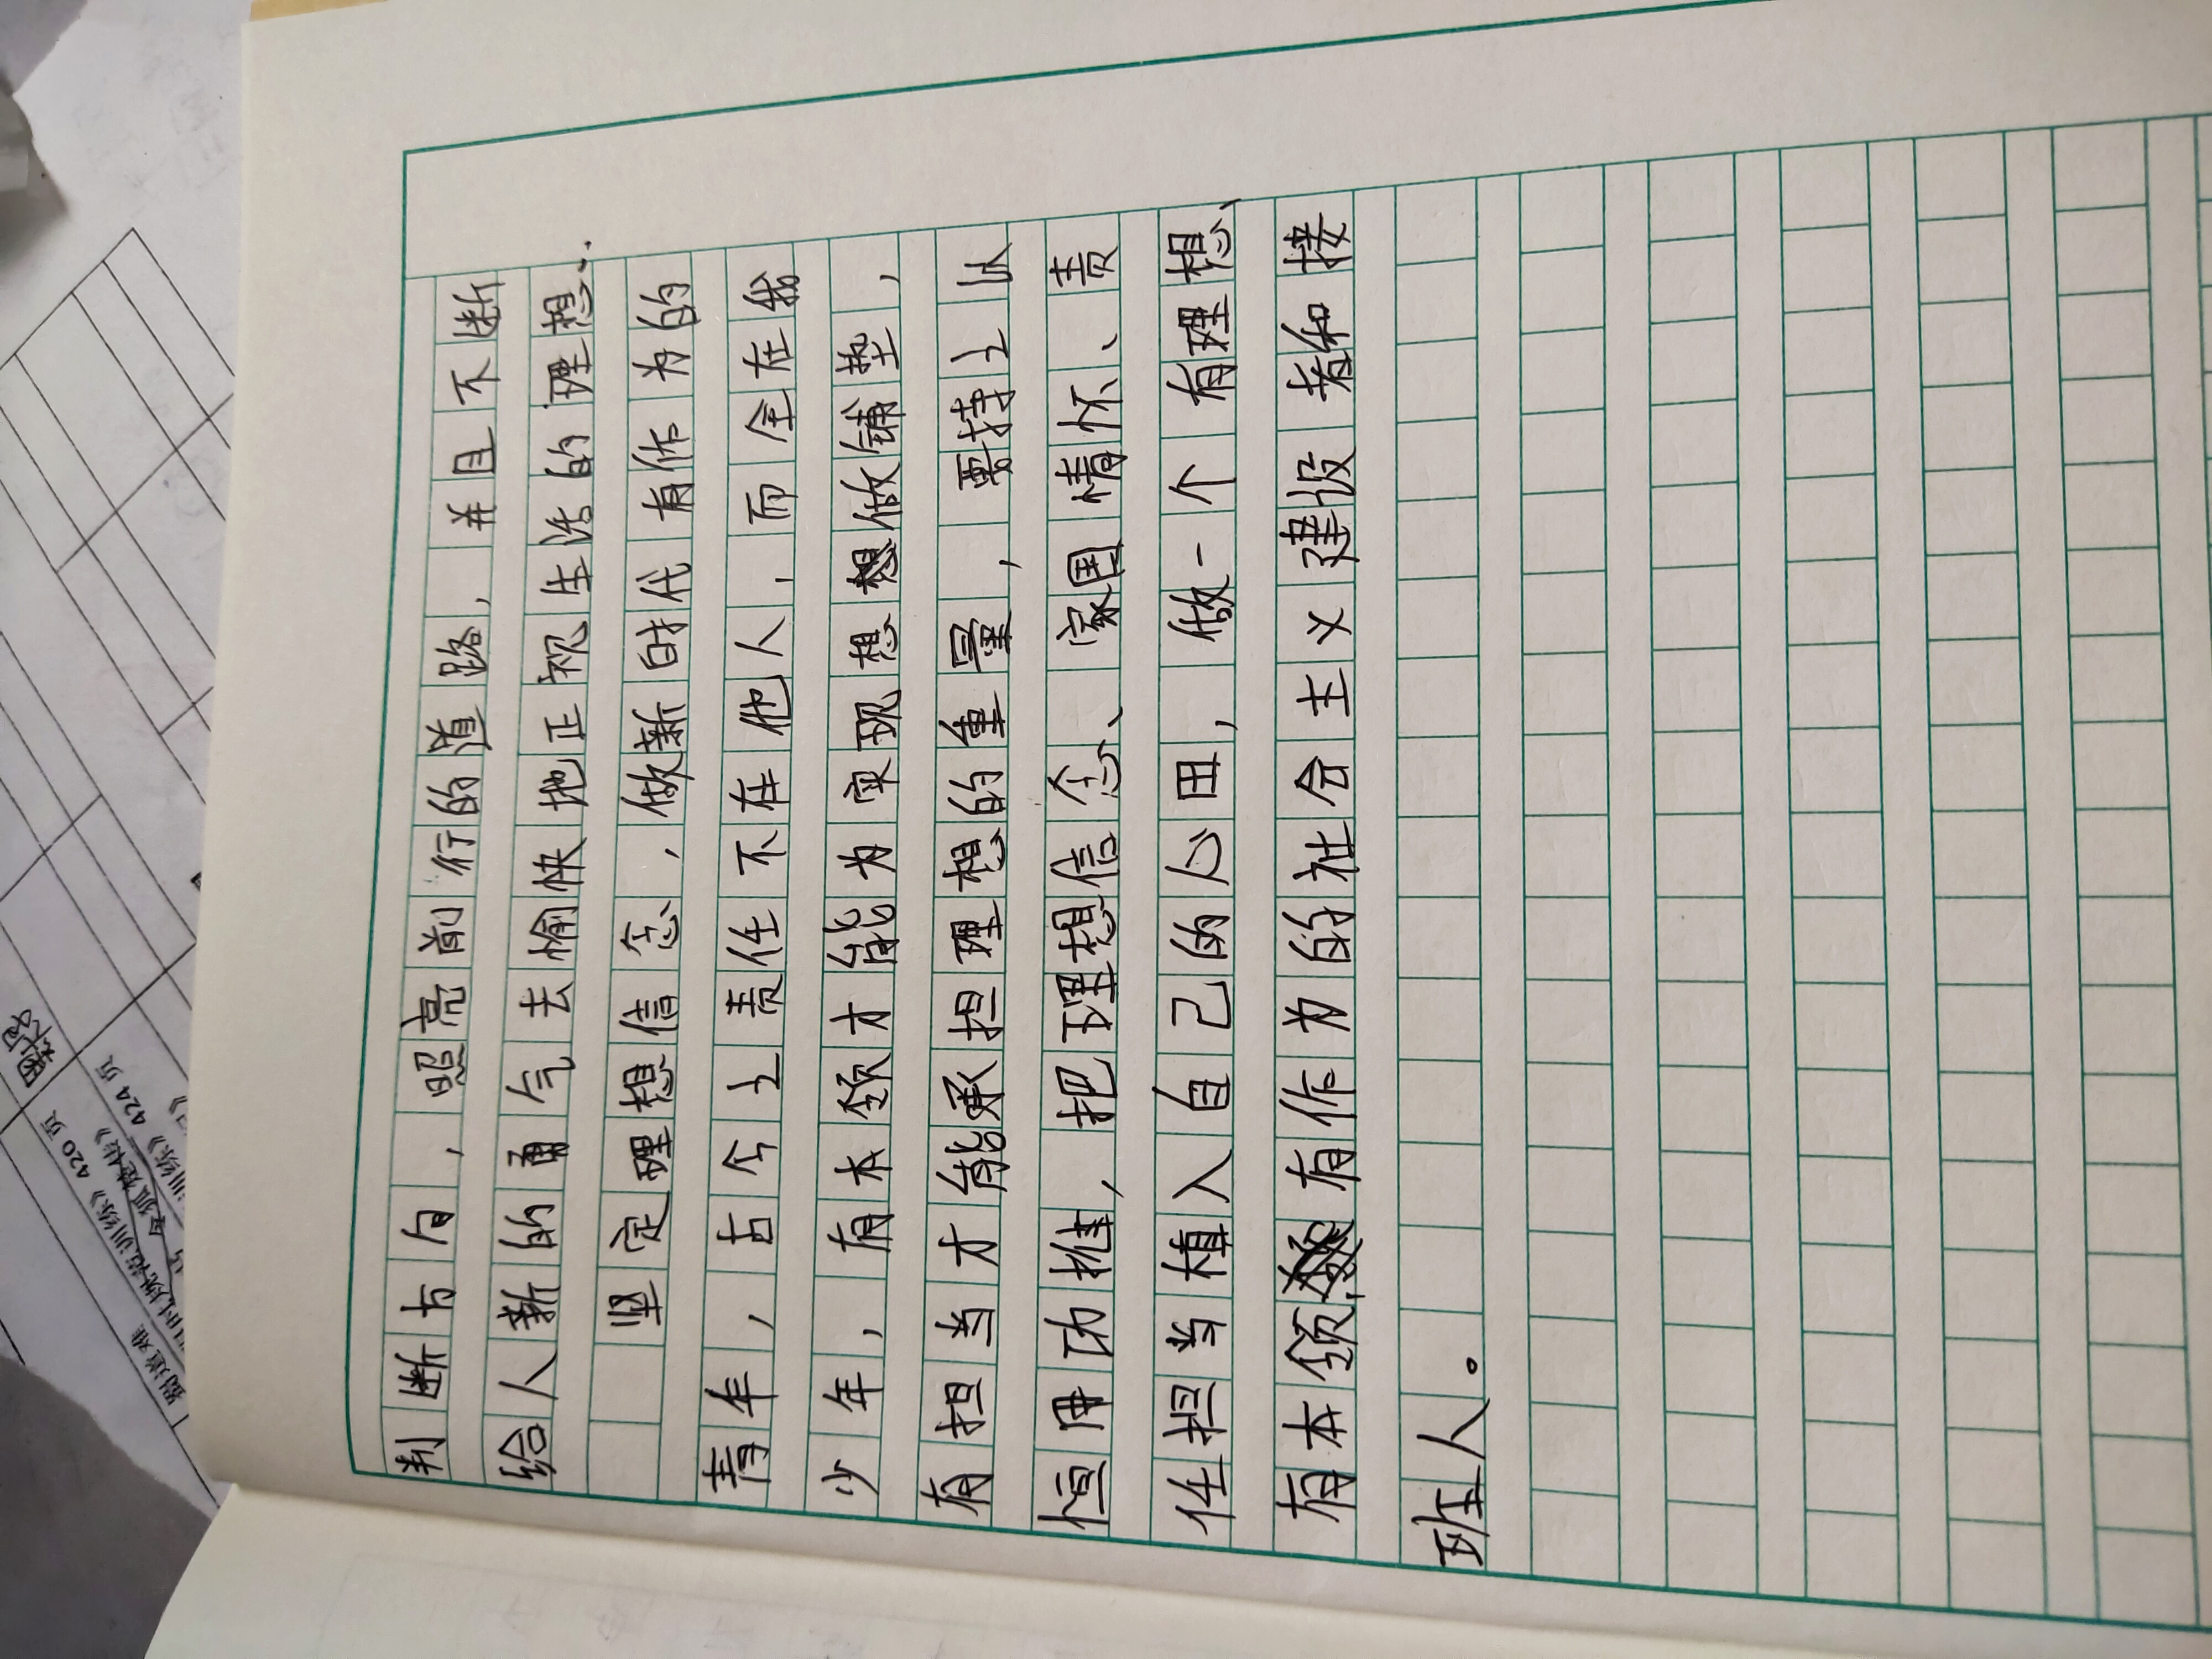 判断方向,照亮前行的道路,并且不断
给人新的勇气去愉快地正视生活的理想..
坚定理想信念,做新时代有作为的
青年,古今之责任不在他人,而全在我
少年,有本领才能为实现想想做铺垫,
有担当才能承担理想的重量,要持之以
恒用功推,把理想信念、家国情怀、责
任担当植入自己的心田,做一个有理想、
有本领、有作为的社会主义建设者和接
班人。
蜀道难
训练》420页
训练》424页